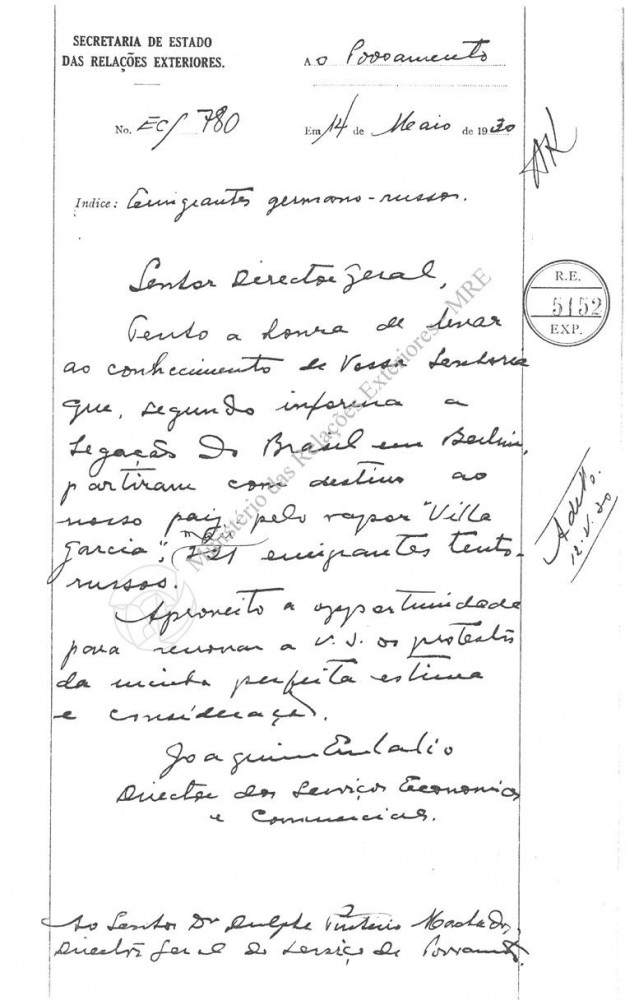 SECRETARIA DE ESTADO
DAS RELAÇÕES EXTERIORES.
Ao Povoamento
No. EC/ 780
Em 14 de Maio de 1930
Indice: Emigrantes germano-russos.
Senhor Director Geral,
Tenho a honra de levar
ao conhecimento de Vossa Senhoria
que, segundo informa a
Legação do Brasil em Berlim,
partiram com destino ao
nosso paiz, pelo vapor "Villa
Garcia", emigrantes teuto-
russos.
Aproveito a opportunidade
para renovar a V. S. os protestos
da minha perfeita estima
e consideração.
Joaquim Eulalio
Director dos Serviços Economicos
e Commerciaes.
Ao Senhor Dr Dulphe Pinheiro Machado,
Director Geral do Serviço de Povoamento.
R.E.
5152
EXP.
12.V.30
Ministério das Relações Exteriores - MRE